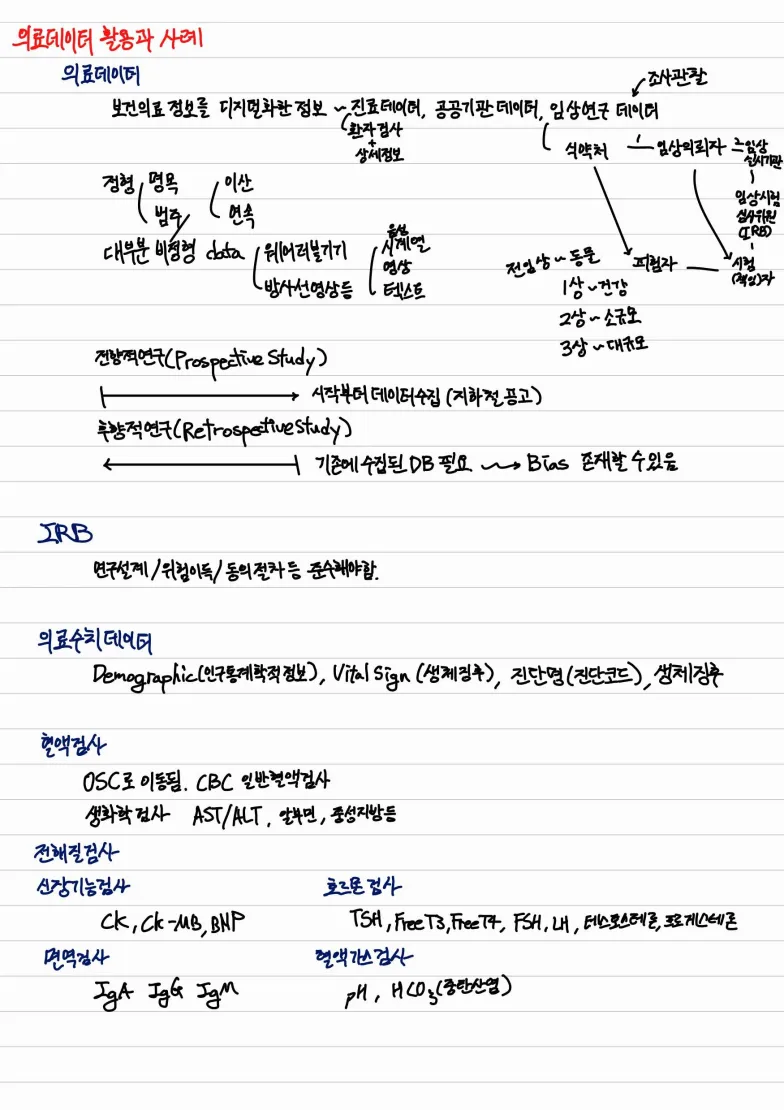 의료데이터 활용과 사례
의료데이터
조사관찰
보건의료 정보를 디지털화한 정보 ~ 진료데이터, 공공기관 데이터, 임상연구 데이터
환자검사
+
상세정보
식약처 — 임상의뢰자
임상
실시기관
임상시험
심사위원
(IRB)
정형 명목 이산
범주 연속
대부분 비정형 data 웨어러블기기
방사선영상등
음성
시계열
영상
텍스트
전임상 ~ 동물
피험자 — 시험
(책임)자
1상 ~ 건강
2상 ~ 소규모
3상 ~ 대규모
전향적연구(Prospective Study)
시작부터 데이터수집 (지하철 공고)
후향적연구(Retrospective Study)
기존에 수집된 DB 필요 → Bias 존재할 수 있음
IRB
연구설계/위험이득/동의절차 등 준수해야함.
의료수치데이터
Demographic(인구통계학적정보), Vital Sign (생체징후), 진단명(진단코드), 생체징후
혈액검사
OSC로 이동됨. CBC 일반혈액검사
생화학검사 AST/ALT, 알부민, 중성지방등
전해질검사
신장기능검사
CK, CK-MB, BNP
호르몬 검사
TSH, Free T3, Free T4, FSH, LH, 테스토스테론, 프로게스테론
면역검사
IgA IgG IgM
혈액가스검사
pH, HCO3(중탄산염)